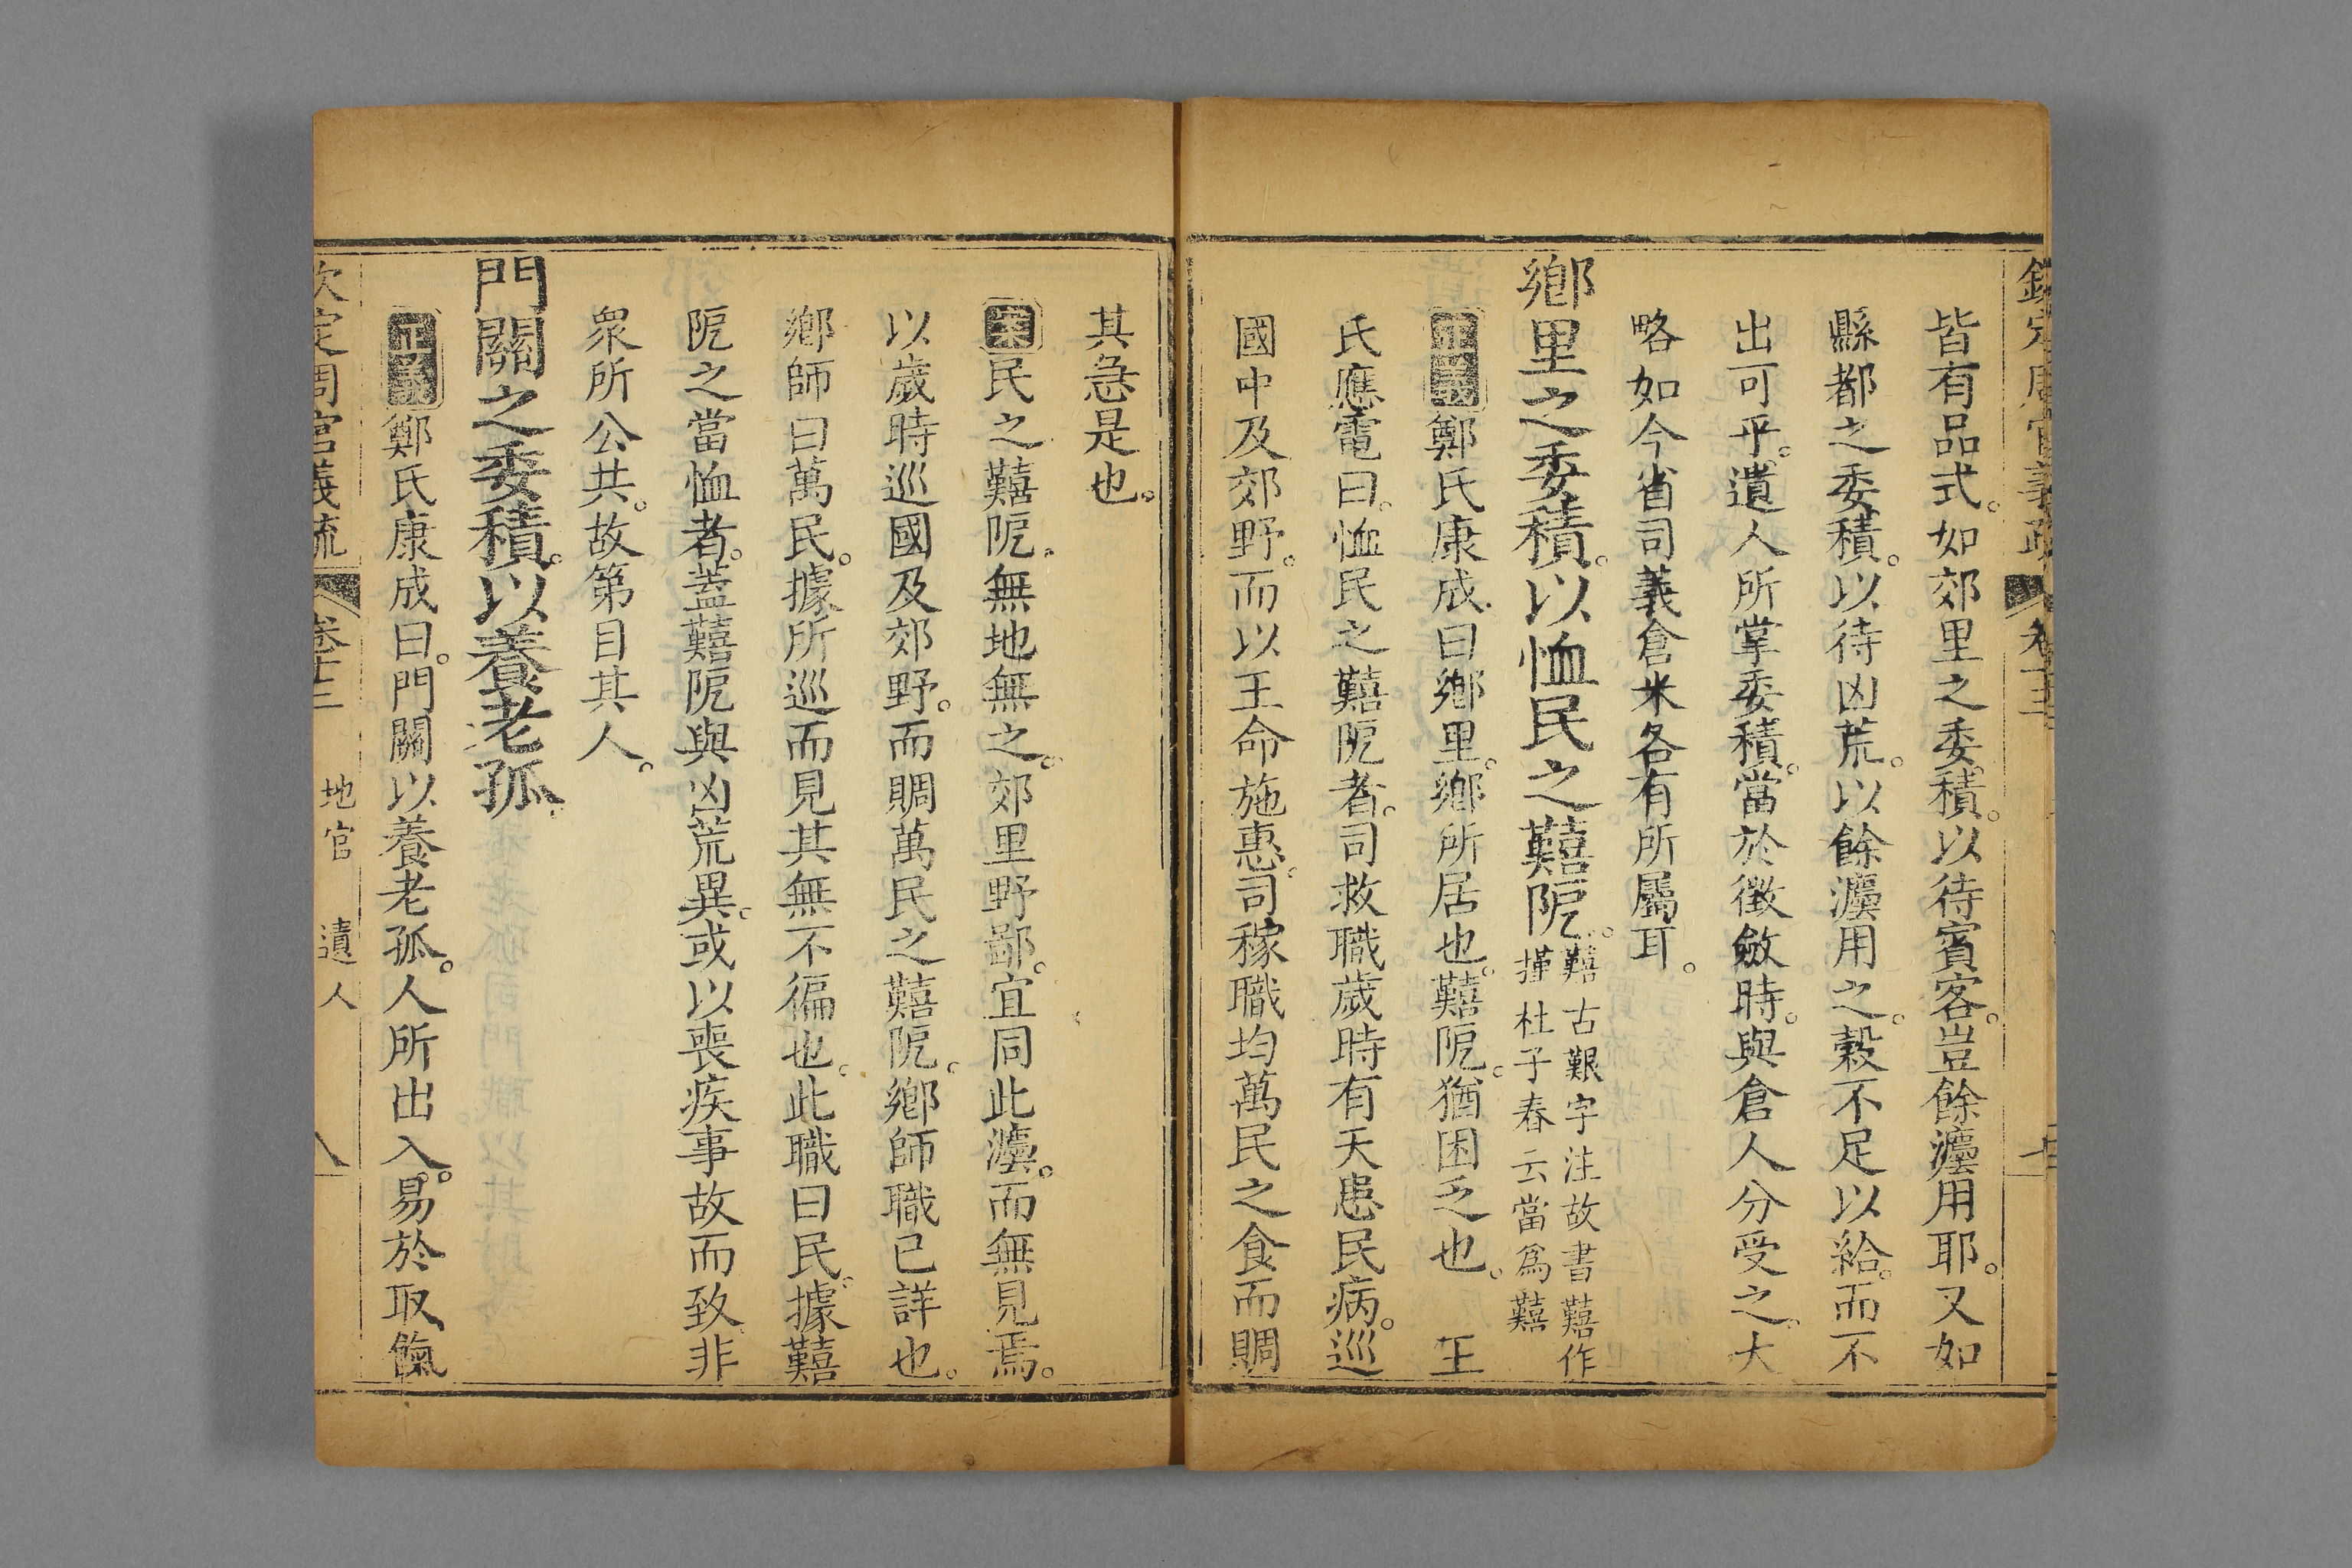 皆有品式。如郊里之委積。以待賓客。豈餘灋用耶。又如
縣都之委積。以待凶荒。以餘灋用之。穀不足以給。而不
出可乎。遺人所掌委積。當於徵斂時。與倉人分受之。大
略如今省司義倉米各有所屬耳。
鄉里之委積。以恤民之囏阨。
囏古艱字注故書囏作
㨷杜子春云當爲囏
正義鄭氏康成曰鄉里。鄉所居也。囏阨。猶困乏也。王
氏應電曰。恤民之囏阨者。司救職歲時有天患民病。巡
國中及郊野。而以王命施惠。司稼職均萬民之食而賙
其急是也。
案民之囏阨。無地無之。郊里野鄙。宜同此灋。而無見焉。
以歲時巡國及郊野。而賙萬民之囏阨。鄉師職已詳也。
鄉師曰萬民。據所巡而見其無不徧也。此職曰民。據囏
阨之當恤者。蓋囏阨與凶荒異。或以喪疾事故而致非
衆所公共。故第目其人。
門關之委積。以養老孤。
正義鄭氏康成曰。門關以養老孤。人所出入。易於取餼
欽定周官義疏 卷十三 地官 遺人